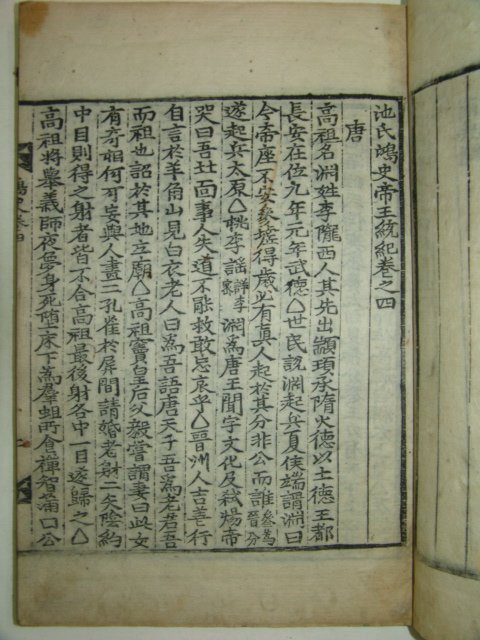 池氏鴻史帝王統紀卷之四
唐
高祖名淵姓李隴西人其先出顓頊承隋火德以土德王都
長安在位九年元年武德△世民説淵起兵夏侯端謂淵曰
今帝座不安參墟得歲必有真人起於其分非公而誰參為晉分
遂起兵太原△桃李謡詳李密淵為唐王聞宇文化及弒煬帝
哭曰吾北面而事人失道不能救敢忘哀乎△晉州人吉善行
自言於羊角山見白衣老人曰為吾語唐天子吾為老君吾
而祖也詔於其地立廟△高祖竇皇后父毅嘗謂妻曰此女
有奇相何可妄與人畫二孔雀於屏間請婚者射二矢陰約
中目則得之射者皆不合高祖最後射各中一目遂歸之△
高祖將擧義師夜夢身死墮床下為羣蛆所食禪智滿曰公
鴻史卷四